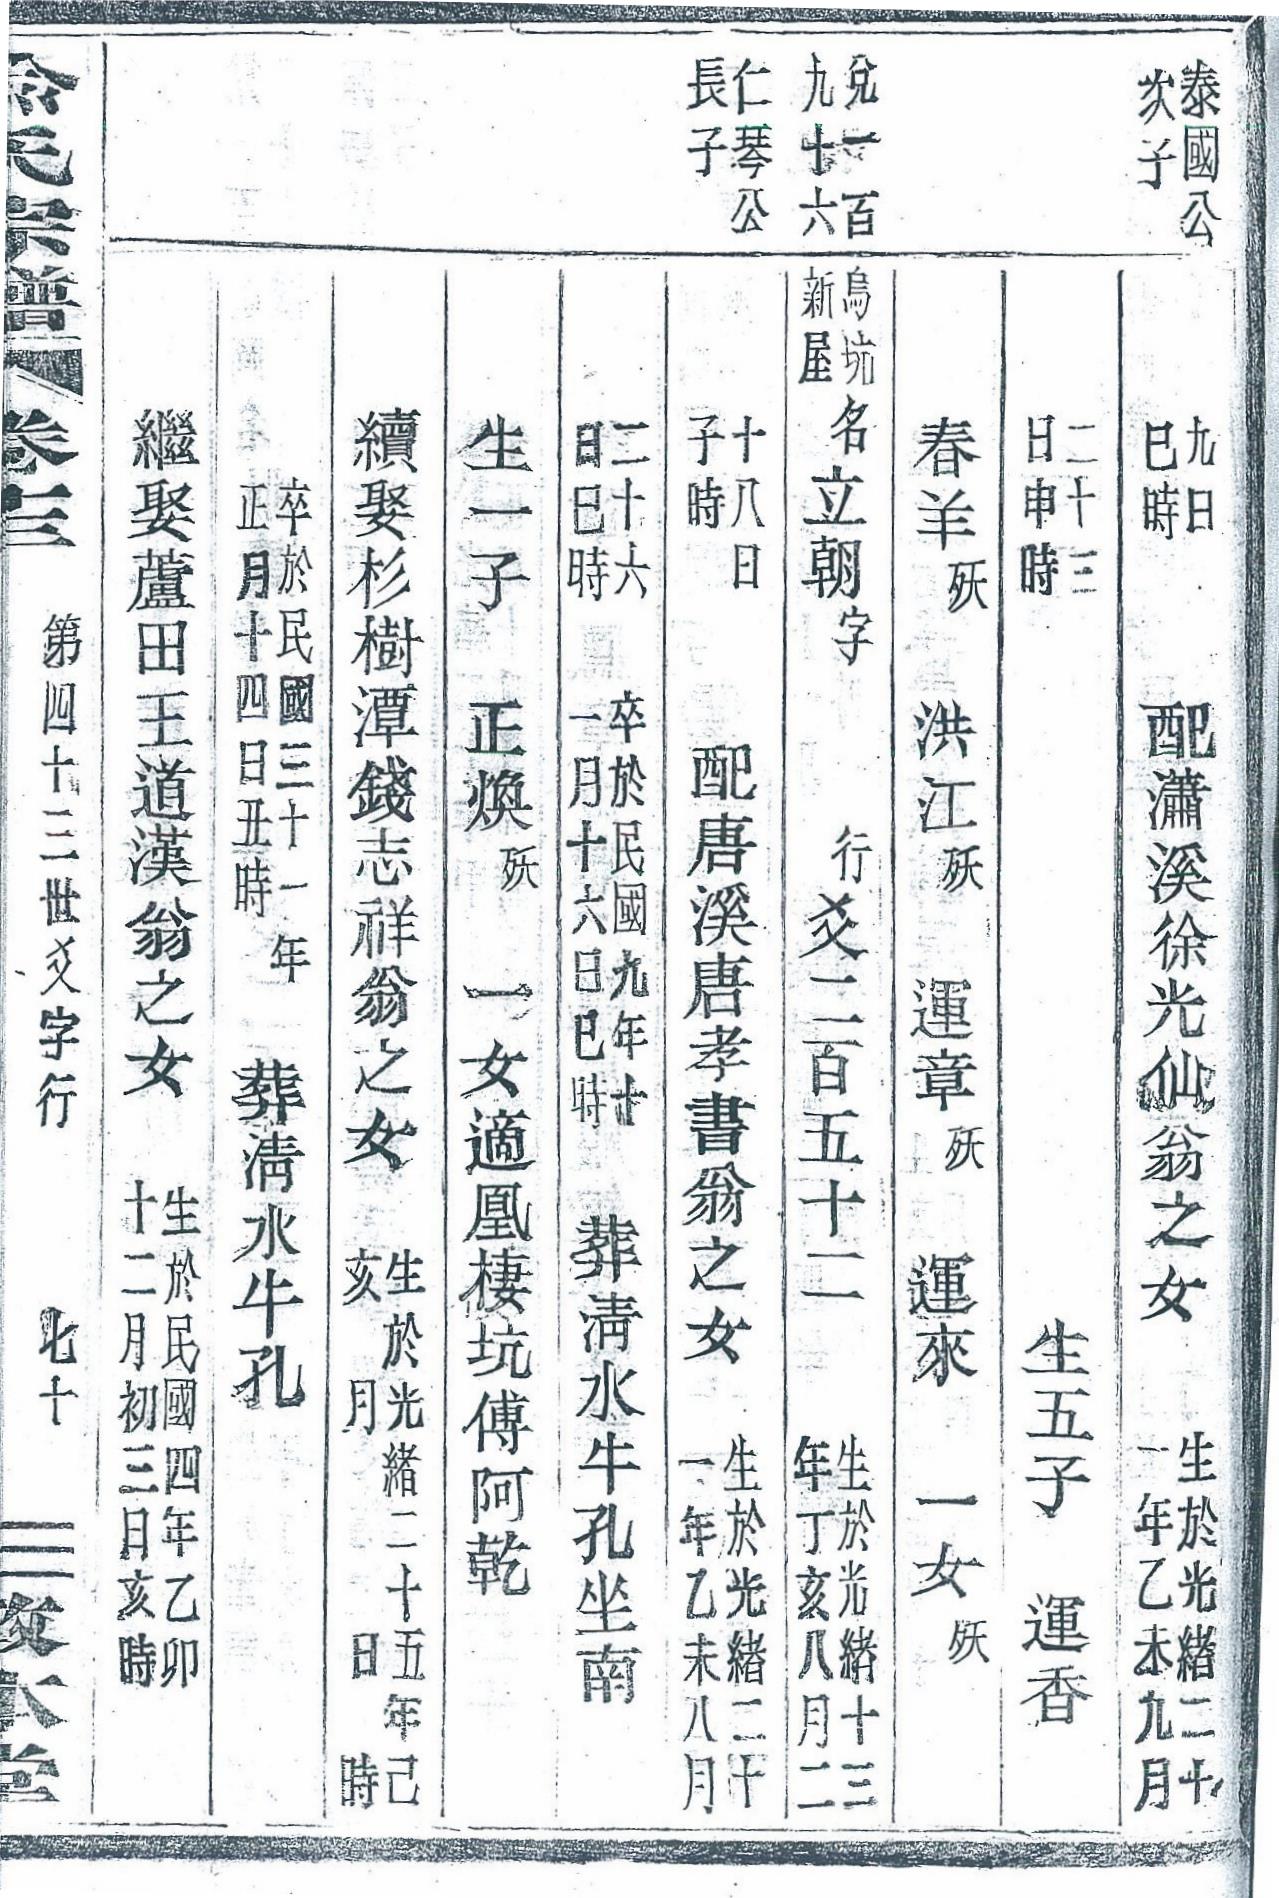 泰國公
次子
九日
巳時
配瀟溪徐光仙翁之女
生於光緒二十
一年乙未九月
二十三
日申時
生五子 運香
春羊殀 洪江殀 運章殀 運來 一女殀
兌一百
九十六
烏坑
新屋
名立朝字 行爻二百五十二
生於光緒十三
年丁亥八月二
仁琴公
長子
十八日
子時
配唐溪唐孝書翁之女
生於光緒二十
一年乙未八月
二十六
日巳時
卒於民國九年十
一月十六日巳時
葬清水牛孔坐南
生一子 正煥殀 一女適凰棲坑傅阿乾
續娶杉樹潭錢志祥翁之女
生於光緒二十五年己
亥 月 日 時
卒於民國三十一年
正月十四日丑時
葬清水牛孔
繼娶蘆田王道漢翁之女
生於民國四年乙卯
十二月初三日亥時
氏宗譜 卷十三 第四十二世爻字行 七十 本堂